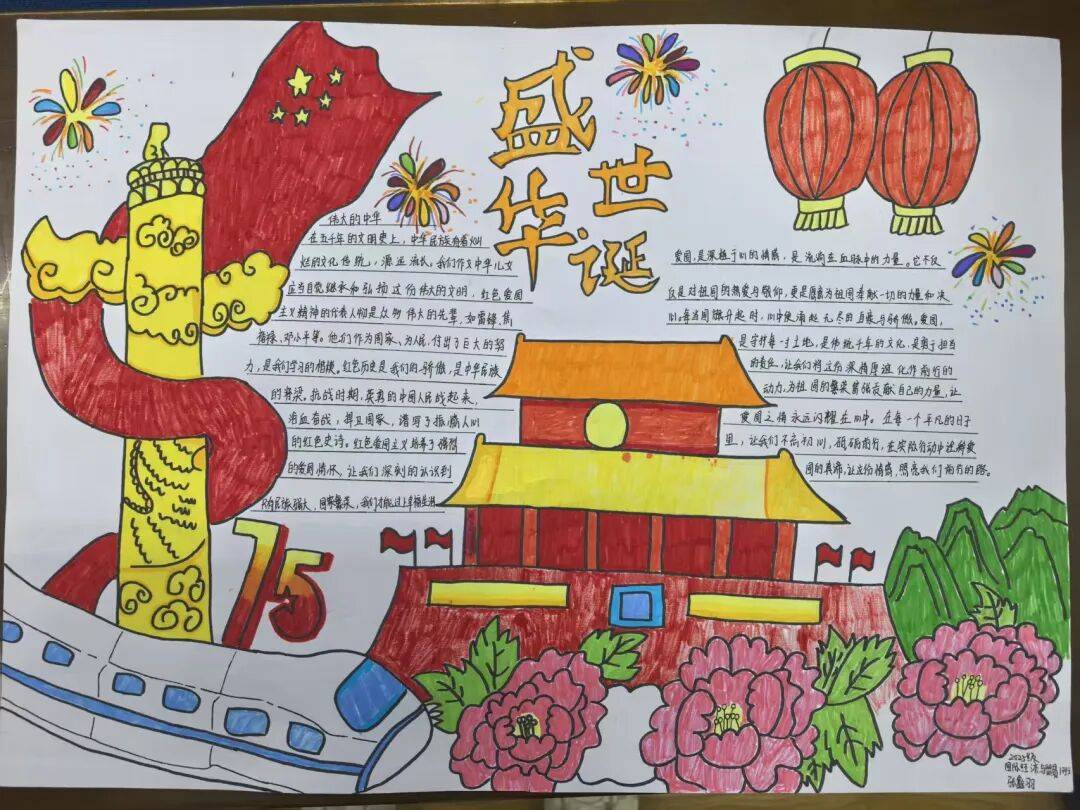 盛世
华诞
伟大的中华
在五千年的文明史上，中华民族有着灿
烂的文化传统，源远流长。我们作文中华儿女
应当自觉继承和弘扬这份伟大的文明，红色爱国
主义精神的代表人物是众多伟大的先辈，如雷锋、焦
裕禄、邓小平等。他们作为国家、为人民，付出了巨大的努
力，是我们学习的楷模。红色历史是我们的骄傲，是中华民族
的脊梁。抗战时期，英勇的中国人民战起来，
浴血奋战，捍卫国家，谱写了振撼人心
的红色史诗。红色爱国主义培养了
的爱国情怀，让我们深刻的认识到
只有民族强大，国家繁荣，我们才能过上幸福生活
75
爱国，是深植于心的情感，是流淌在血脉中的力量。它不仅
仅是对祖国的热爱与敬仰，更是愿意为祖国奉献一切的力量和决
心。每当国旗升起时，心中便涌起无尽的自豪与骄傲。爱国，
是守护每一寸土地，是传统千年的文化，是勇于担当
的责任，让我们将这份深情厚谊化作前行的
动力，为祖国的繁荣富强贡献自己的力量，让
爱国之情永远闪耀在心中。在每一个平凡的日子
里，让我们不忘初心，砥砺前行，在实际行动中诠释爱
国的真谛，让这份情感，照亮我们前行的路。
国际经济与贸易
张